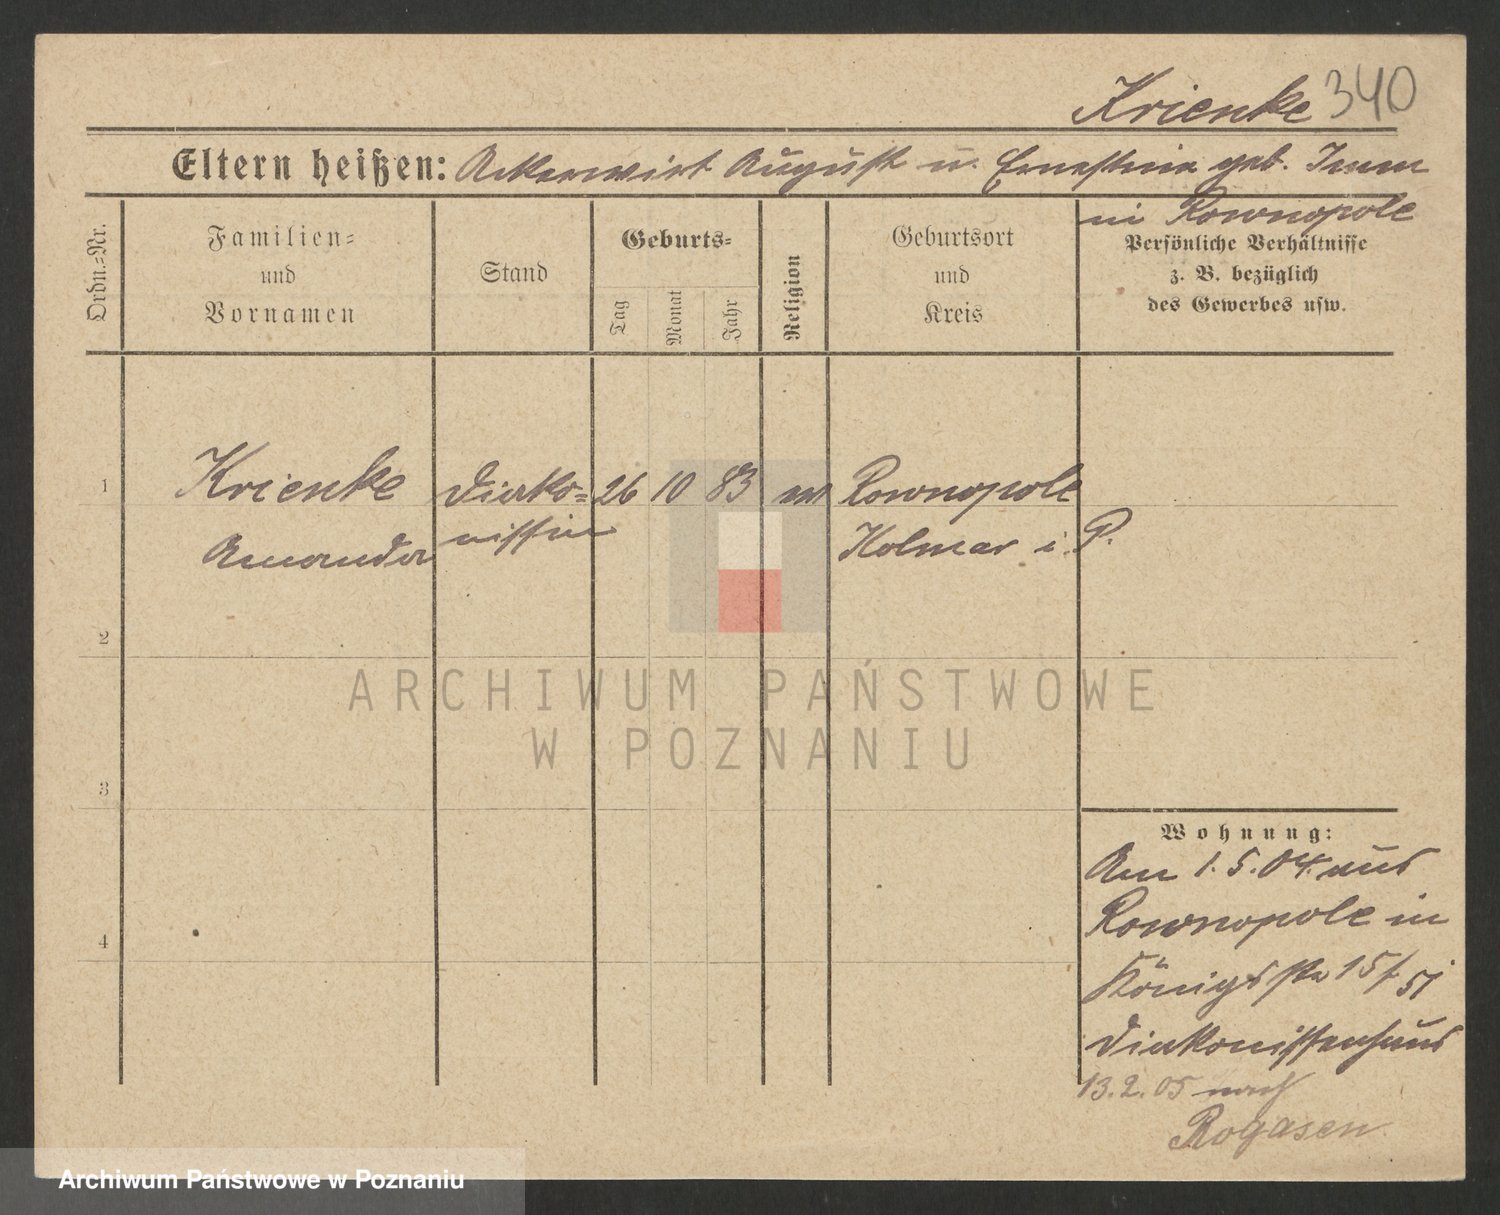 Krienke 340
Eltern heißen: Ackerwirt August u. Ernestine geb. Imm
in Rownopole
Ordn.=Nr.
Familien=
und
Vornamen
Stand
Geburts=
Tag
Monat
Jahr
Religion
Geburtsort
und
Kreis
Persönliche Verhältnisse
z. B. bezüglich
des Gewerbes usw.
1
Krienke Diako= 26 10 83 ev Rownopole
Amanda nissin Kolmar i. P.
2
3
4
ARCHIWUM PAŃSTWOWE
W POZNANIU
Wohnung:
Am 1.5.04. aus
Rownopole in
Königsstr 15/
Diakonissenhaus
13.2.05 nach
Rogasen
Archiwum Państwowe w Poznaniu